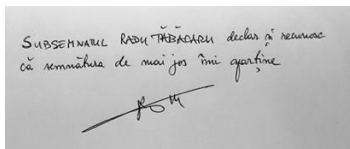 SUBSEMNATUL RADU TĂBĂCARU declar și recunosc
că semnătura de mai jos îmi aparține